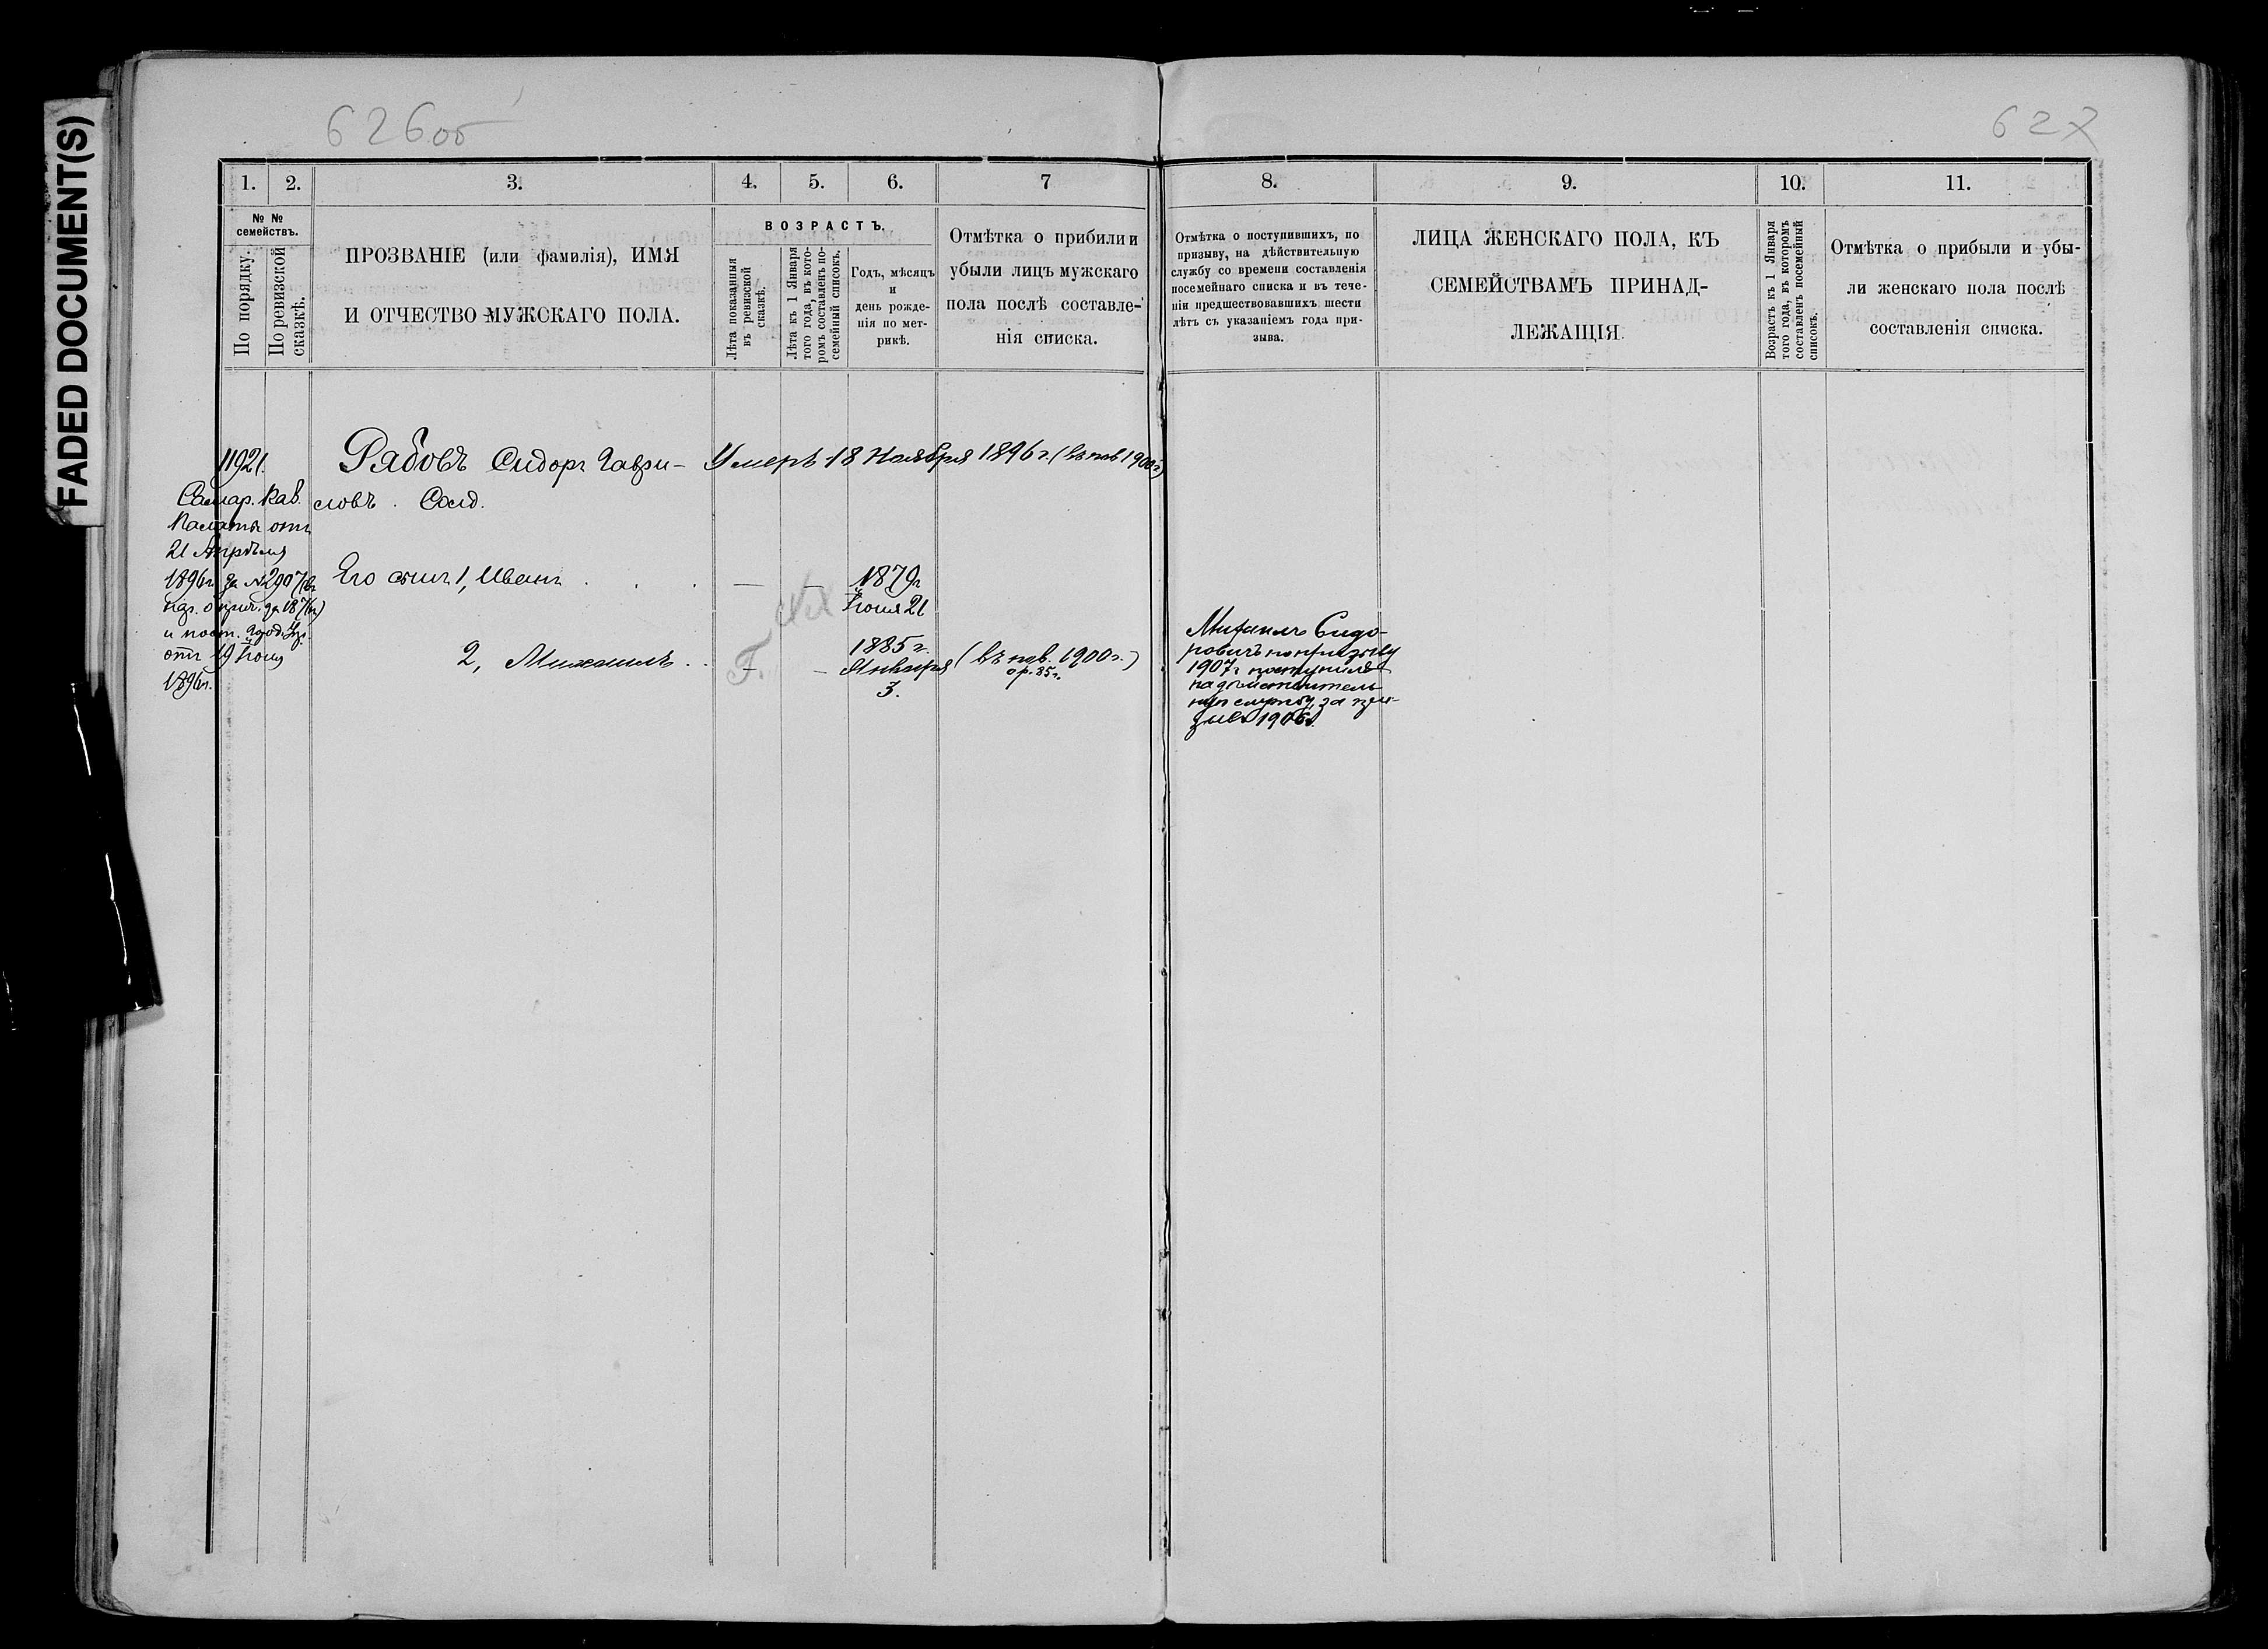 FADED DOCUMENT(S)
626об
627
1. 2. 3. 4. 5. 6. 7
№ № семействъ.
По порядку.
По ревизской сказкѣ.
ПРОЗВАНІЕ (или фамилія), ИМЯ
И ОТЧЕСТВО МУЖСКАГО ПОЛА.
ВОЗРАСТЪ.
Лѣта показанныя
въ ревизской
сказкѣ.
Лѣта къ 1 Января
того года, въ кото-
ромъ составленъ по-
семейный списокъ.
Годъ, мѣсяцъ
и
день рожде-
нія по мет-
рикѣ.
Отмѣтка о прибили и
убыли лицъ мужскаго
пола послѣ составле-
нія списка.
8. 9. 10. 11.
Отмѣтка о поступившихъ, по
призыву, на дѣйствительную
службу со времени составленія
посемейнаго списка и въ тече-
ніи предшествовавшихъ шести
лѣтъ съ указаніемъ года при-
зыва.
ЛИЦА ЖЕНСКАГО ПОЛА, КЪ
СЕМЕЙСТВАМЪ ПРИНАД-
ЛЕЖАЩІЯ.
Возрастъ къ 1 Января
того года, въ которомъ
составленъ посемейный
списокъ.
Отмѣтка о прибыли и убы-
ли женскаго пола послѣ
составленія списка.
11921.
Самар. Каз.
Палаты отъ
21 Апрѣля
1896г. за № 2907
и пост. Город. Упр.
отъ 19 Іюня
1896г.
Рябовъ Сидоръ Гаври-
ловъ. Солд.
Умеръ 18 Ноября 1896 г. (въ пов 1900г)
Его сын 1, Иванъ — — 1879г
Іюня 21
2, Михаилъ — — 1885 г.
Января
3.
(въ пов. 1900г.)
ор. 35г.
Михаилъ Сидо-
ровичъ по призыву
1907г поступилъ
на дѣйствитель
ную службу, за при-
зывъ 1906г.